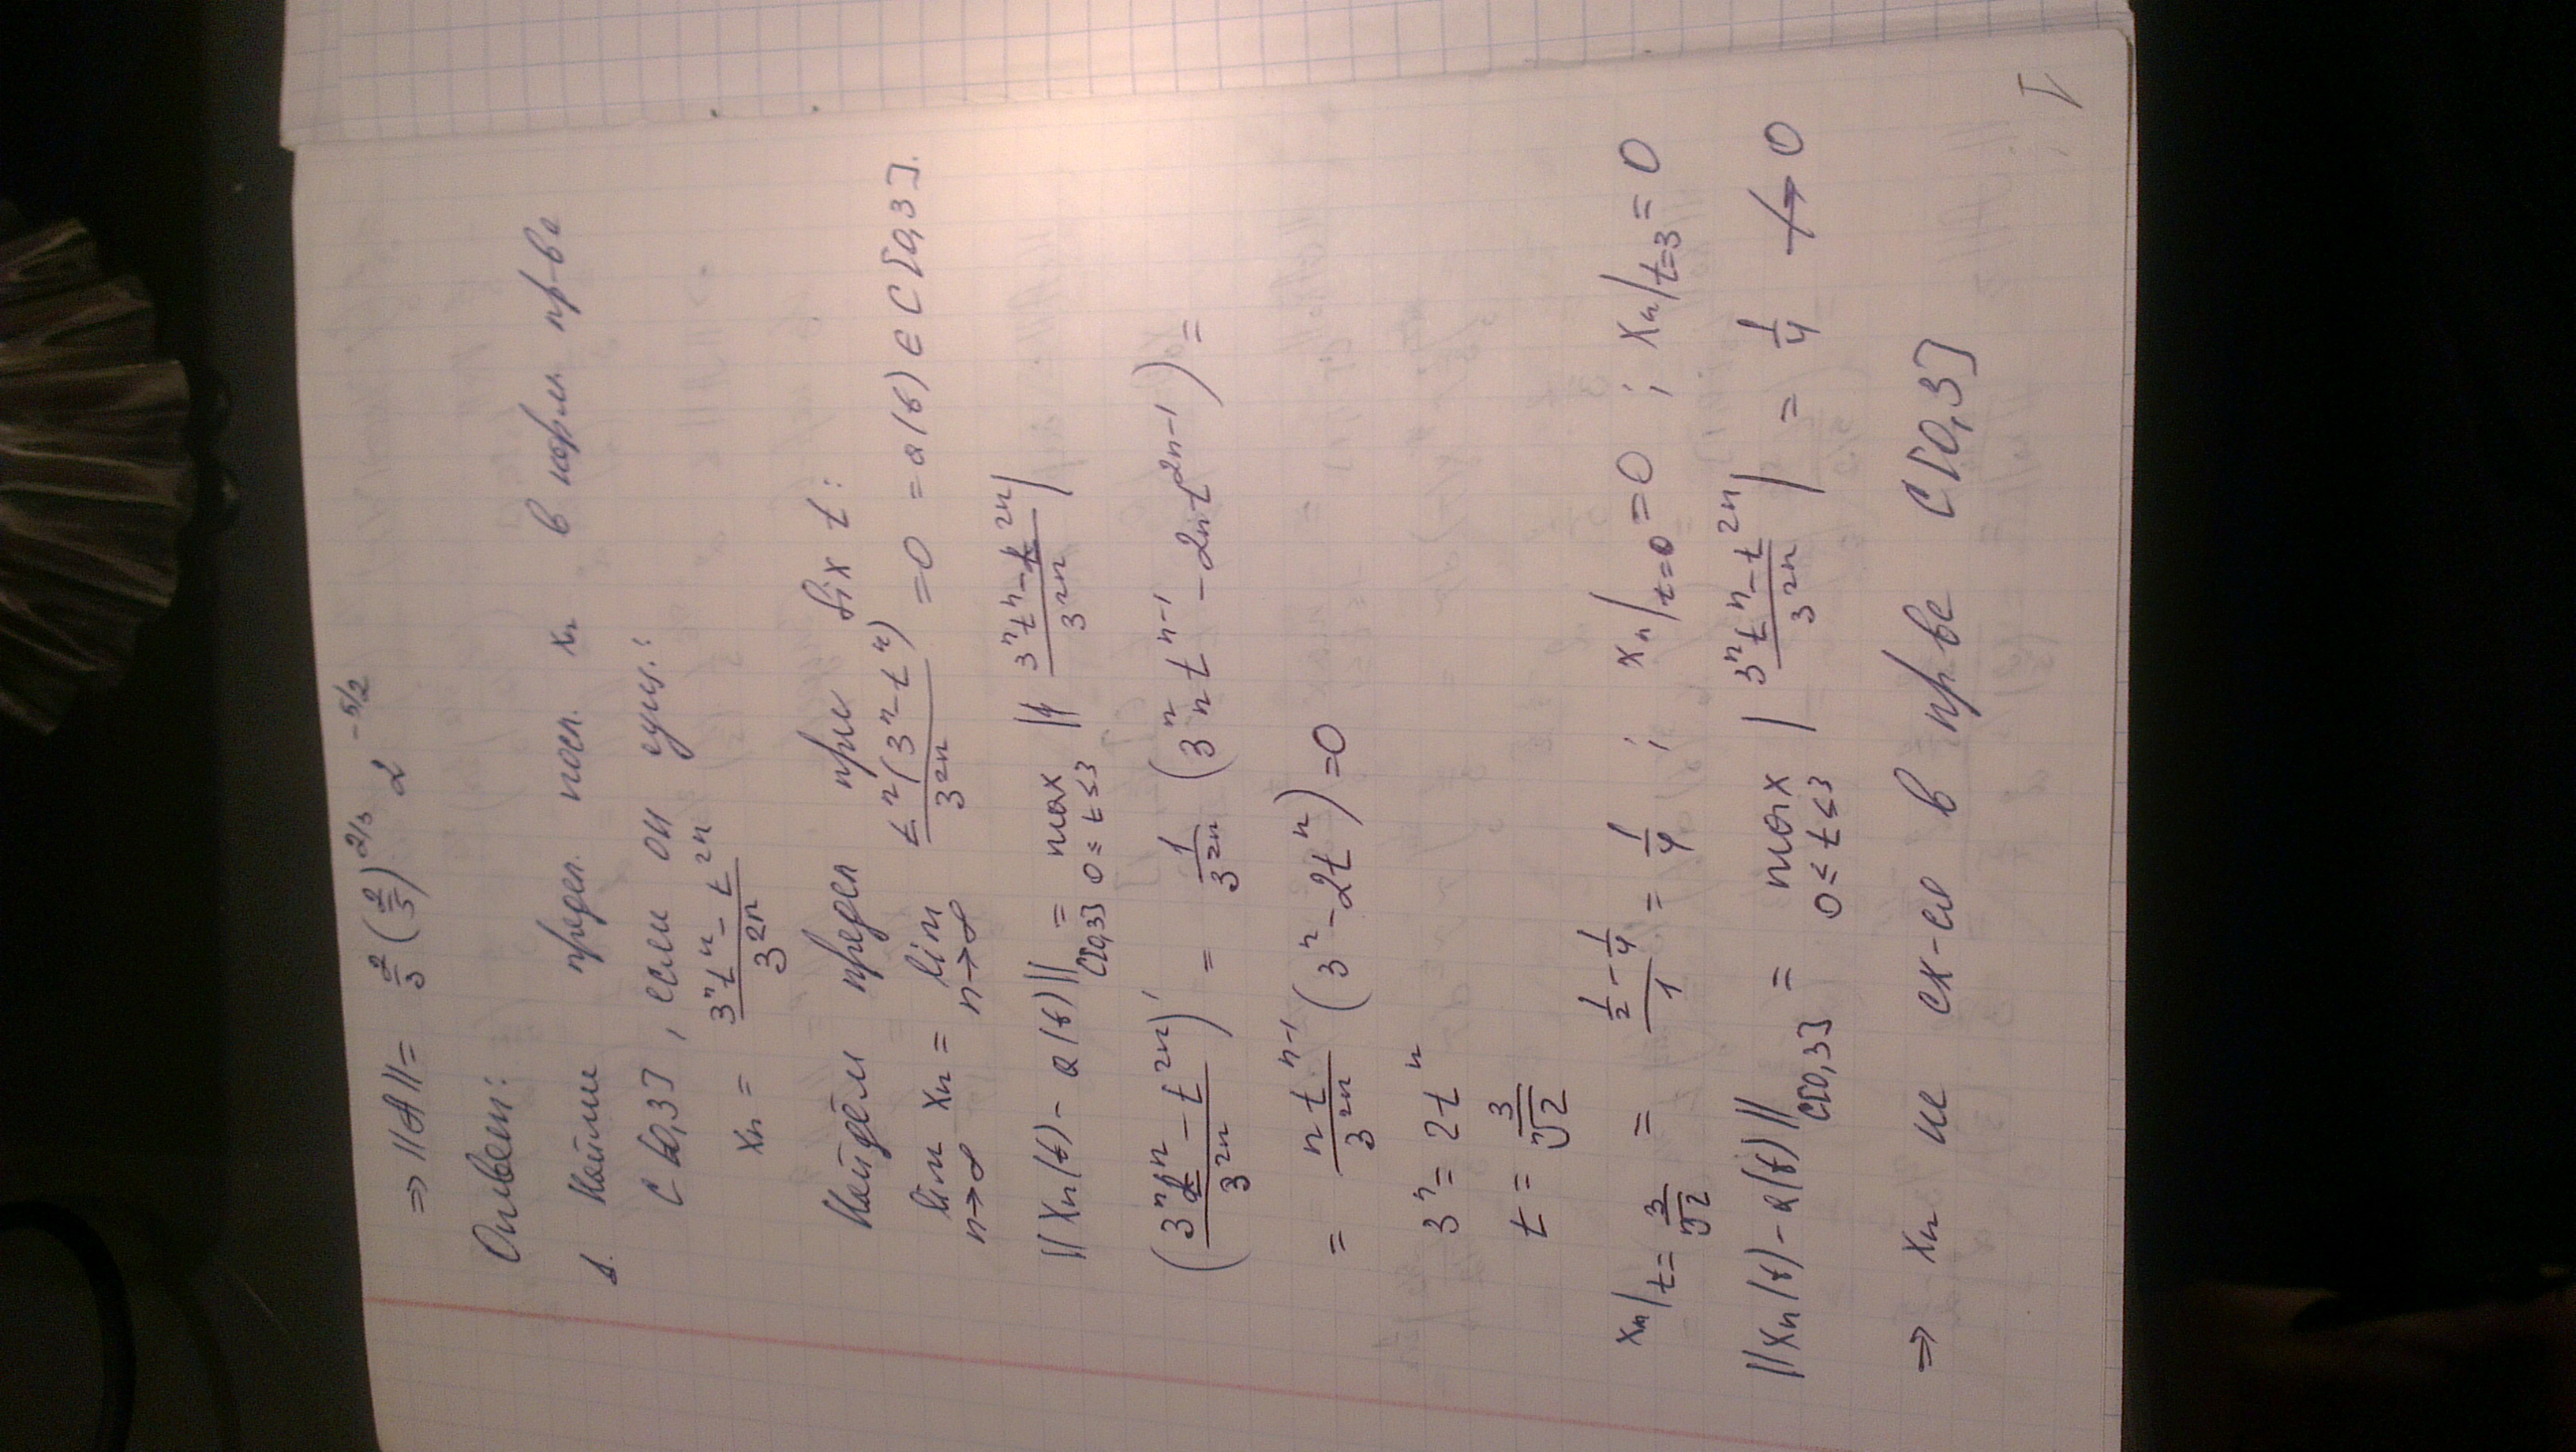 ⇒ ||A|| = 2/3 (2/3)^{2/3} 2^{-5/2}
Ответ:
1. Найти предел посл. xₙ в норм. пр-ве
C[0,3], если он сущ.:
xₙ = (3ⁿtⁿ - t²ⁿ)/3²ⁿ
Найдём предел при fix t:
lim_{n→∞} xₙ = lim_{n→∞} tⁿ(3ⁿ - tⁿ)/3²ⁿ = 0 = a(t) ∈ C[0,3].
||xₙ(t) - a(t)||_{C[0,3]} = max_{0≤t≤3} |(3ⁿtⁿ - t²ⁿ)/3²ⁿ|
((3ⁿtⁿ - t²ⁿ)/3²ⁿ)' = 1/3²ⁿ (3ⁿntⁿ⁻¹ - 2nt²ⁿ⁻¹) =
= ntⁿ⁻¹/3²ⁿ (3ⁿ - 2tⁿ) = 0
3ⁿ = 2tⁿ
t = 3/ⁿ√2
xₙ|_{t=3/ⁿ√2} = (1/2 - 1/4)/1 = 1/4 ; xₙ|_{t=0} = 0 ; xₙ|_{t=3} = 0
||xₙ(t) - a(t)||_{C[0,3]} = max_{0≤t≤3} |(3ⁿtⁿ - t²ⁿ)/3²ⁿ| = 1/4 ↛ 0
⇒ xₙ не сх-ся в пр-ве C[0,3]